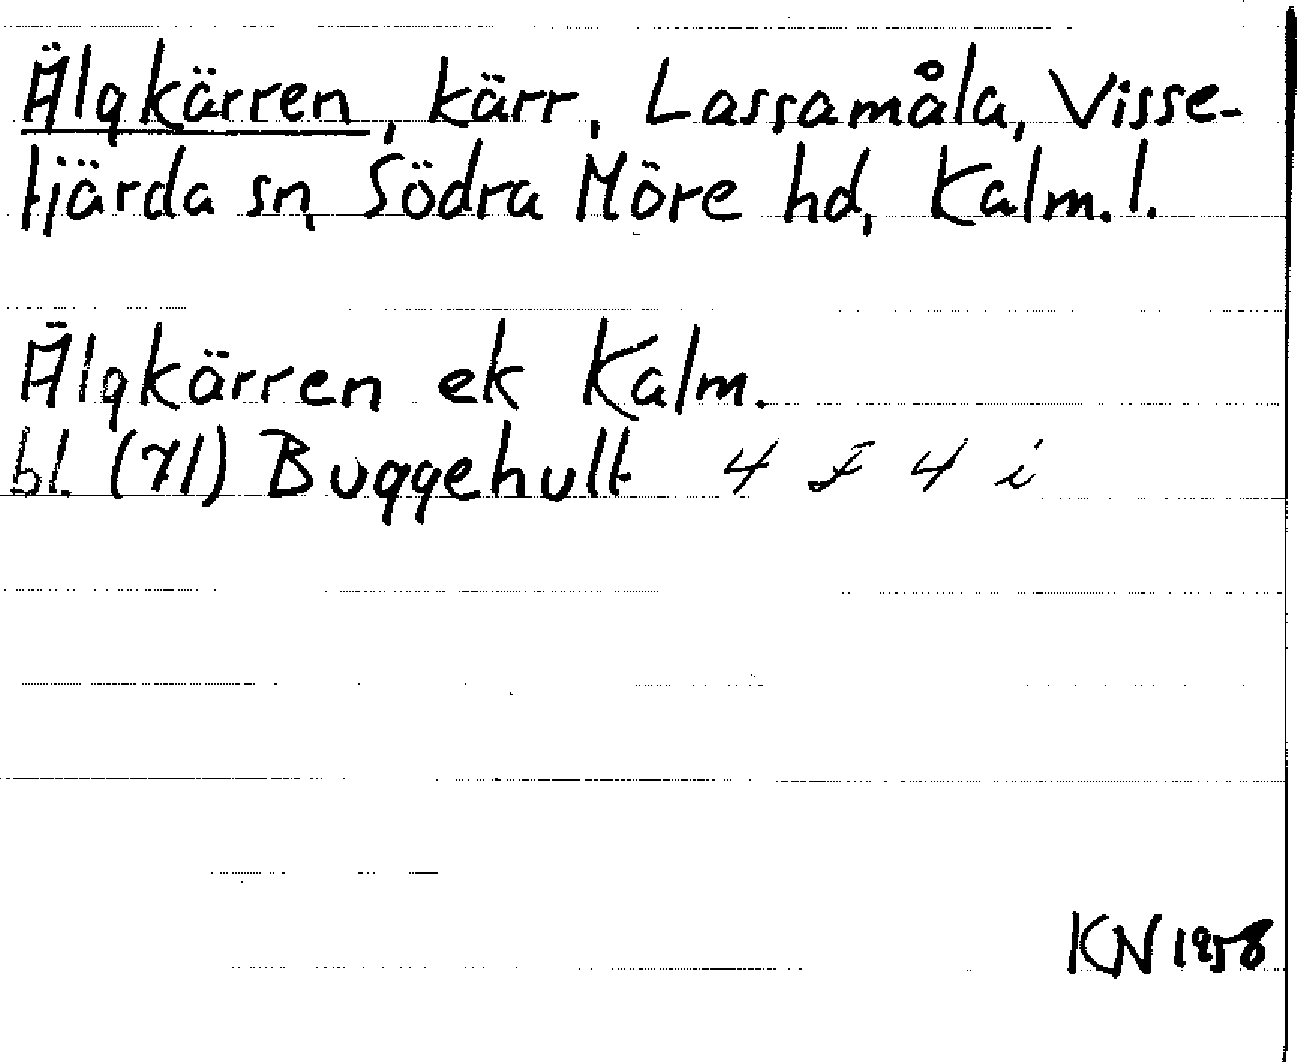 Älgkärren, kärr, Lassamåla, Visse-
fjärda sn, Södra Möre hd, Kalm. l.
Älgkärren ek Kalm.
bl. (71) Buggehult 4 F 4 i
KN 1958